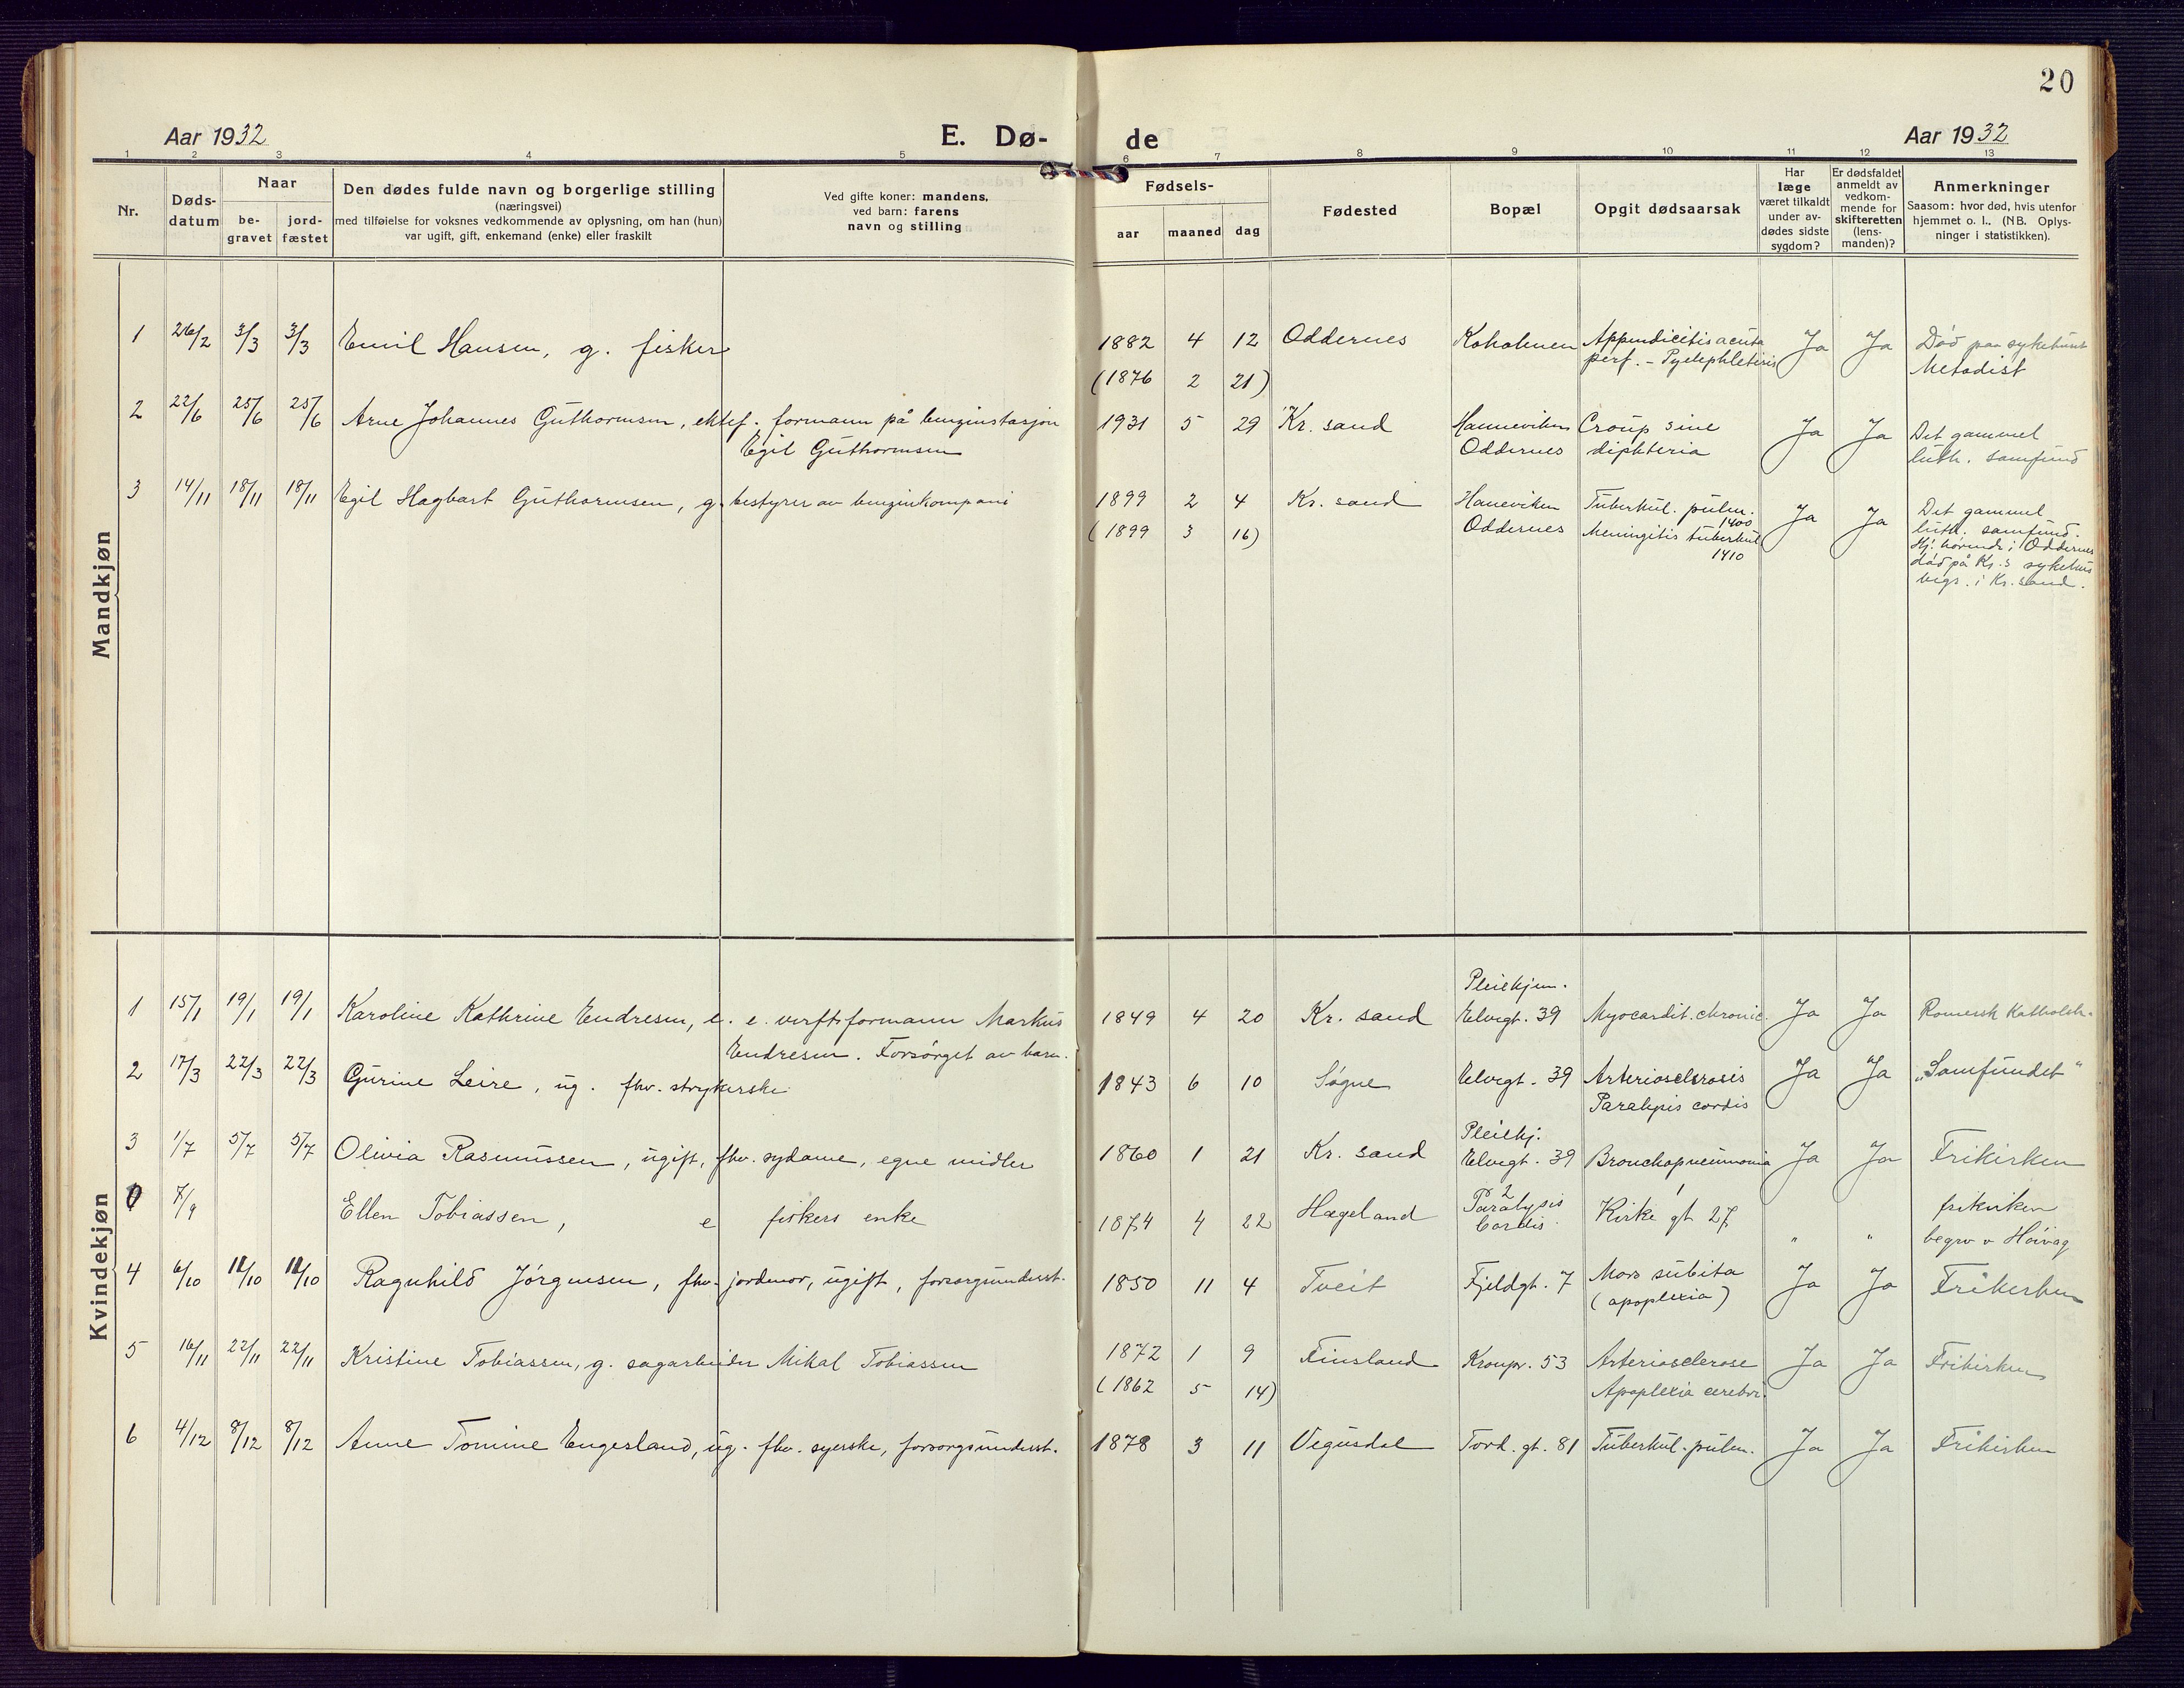 20
Aar 1932
E. Dø-
de
Aar 1932
1 2 3 4 5 6 7 8 9 10 11 12 13
Nr.
Døds-
datum
Naar
be-
gravet
jord-
fæstet
Den dødes fulde navn og borgerlige stilling
(næringsvei)
med tilføielse for voksnes vedkommende av oplysning, om han (hun)
var ugift, gift, enkemand (enke) eller fraskilt
Ved gifte koner: mandens,
ved barn: farens
navn og stilling
Fødsels-
aar
maaned
dag
Fødested
Bopæl
Opgit dødsaarsak
Har
læge
været tilkaldt
under av-
dødes sidste
sygdom?
Er dødsfaldet
anmeldt av
vedkom-
mende for
skifteretten
(lens-
manden)?
Anmerkninger
Saasom: hvor død, hvis utenfor
hjemmet o. l.. (NB. Oplys-
ninger i statistikken).
Mandkjøn
1 26/2 3/3 3/3 Emil Hansen, g. fisker 1882 4 12 Oddernes Koholmen Appendicitis acuta Ja Ja Død paa sykehuset
perf. - Pylephlebitis
(1876 2 21) Metodist
2 22/6 25/6 25/6 Arne Johannes Guthormsen, ektef. formann på benzinstasjon 1931 5 29 Kr. sand Hanneviken Croup sine Ja Ja Det gammel
Egil Guthormsen Oddernes diphteria luth. samfund
3 14/11 18/11 18/11 Egil Hagbart Guthormsen, g. bestyrer av benzinkompani 1899 2 4 Kr. sand Haneviken Tuberkul. pulm. Ja Ja Det gammel
1400
(1899 3 16) Oddernes Meningitis tuberkul luth. samfund.
1410
Hj. hørende i Oddernes
død på Kr. s sykehus
begr. i Kr. sand.
Kvindekjøn
Pleiehjem.
1 15/1 19/1 19/1 Karoline Kathrine Endresen, e. e. verftsformann Markus 1849 4 20 Kr. sand Elvegt. 39 Myocardit. chronic. Ja Ja Romersk Katholsk.
Endresen. Forsørget av barn.
2 17/3 22/3 22/3 Gurine Leire, ug. fhv. strykerske 1843 6 10 Søgne Elvegt. 39 Arteriosclerosis Ja Ja "Samfundet"
Paralysis cordis
Pleiehj.
3 1/7 5/7 5/7 Olivia Rasmussen, ugift, fhv. sydame, egne midler 1860 1 21 Kr. sand Elvegt. 39 Bronchopneumonia Ja Ja Frikirken
2 1
0 7/9 Ellen Tobiassen, e fiskers enke 1874 4 22 Hægeland Paralysis Cordis. Kirke gt 27 " " frikirken
begrv v Høivåg
4 6/10 11/10 11/10 Ragnhild Jørgensen, fhv. jordmor, ugift, forsorgsunderst. 1850 11 4 Tveit Fjeldgt. 7 Mors subita Ja Ja Frikirken
(apoplexia)
5 16/11 22/11 22/11 Kristine Tobiassen, g. sagarbeider Mikal Tobiassen 1872 1 9 Finsland Kronpr. 53 Arteriosclerose Ja Ja Frikirken
(1862 5 14) Apoplexia cerebri.
6 4/12 8/12 8/12 Anne Tomine Engesland, ug. fhv. syerske, forsorgsunderst. 1878 3 11 Vegusdal Tord. gt. 81 Tuberkul. pulm. Ja Ja Frikirken